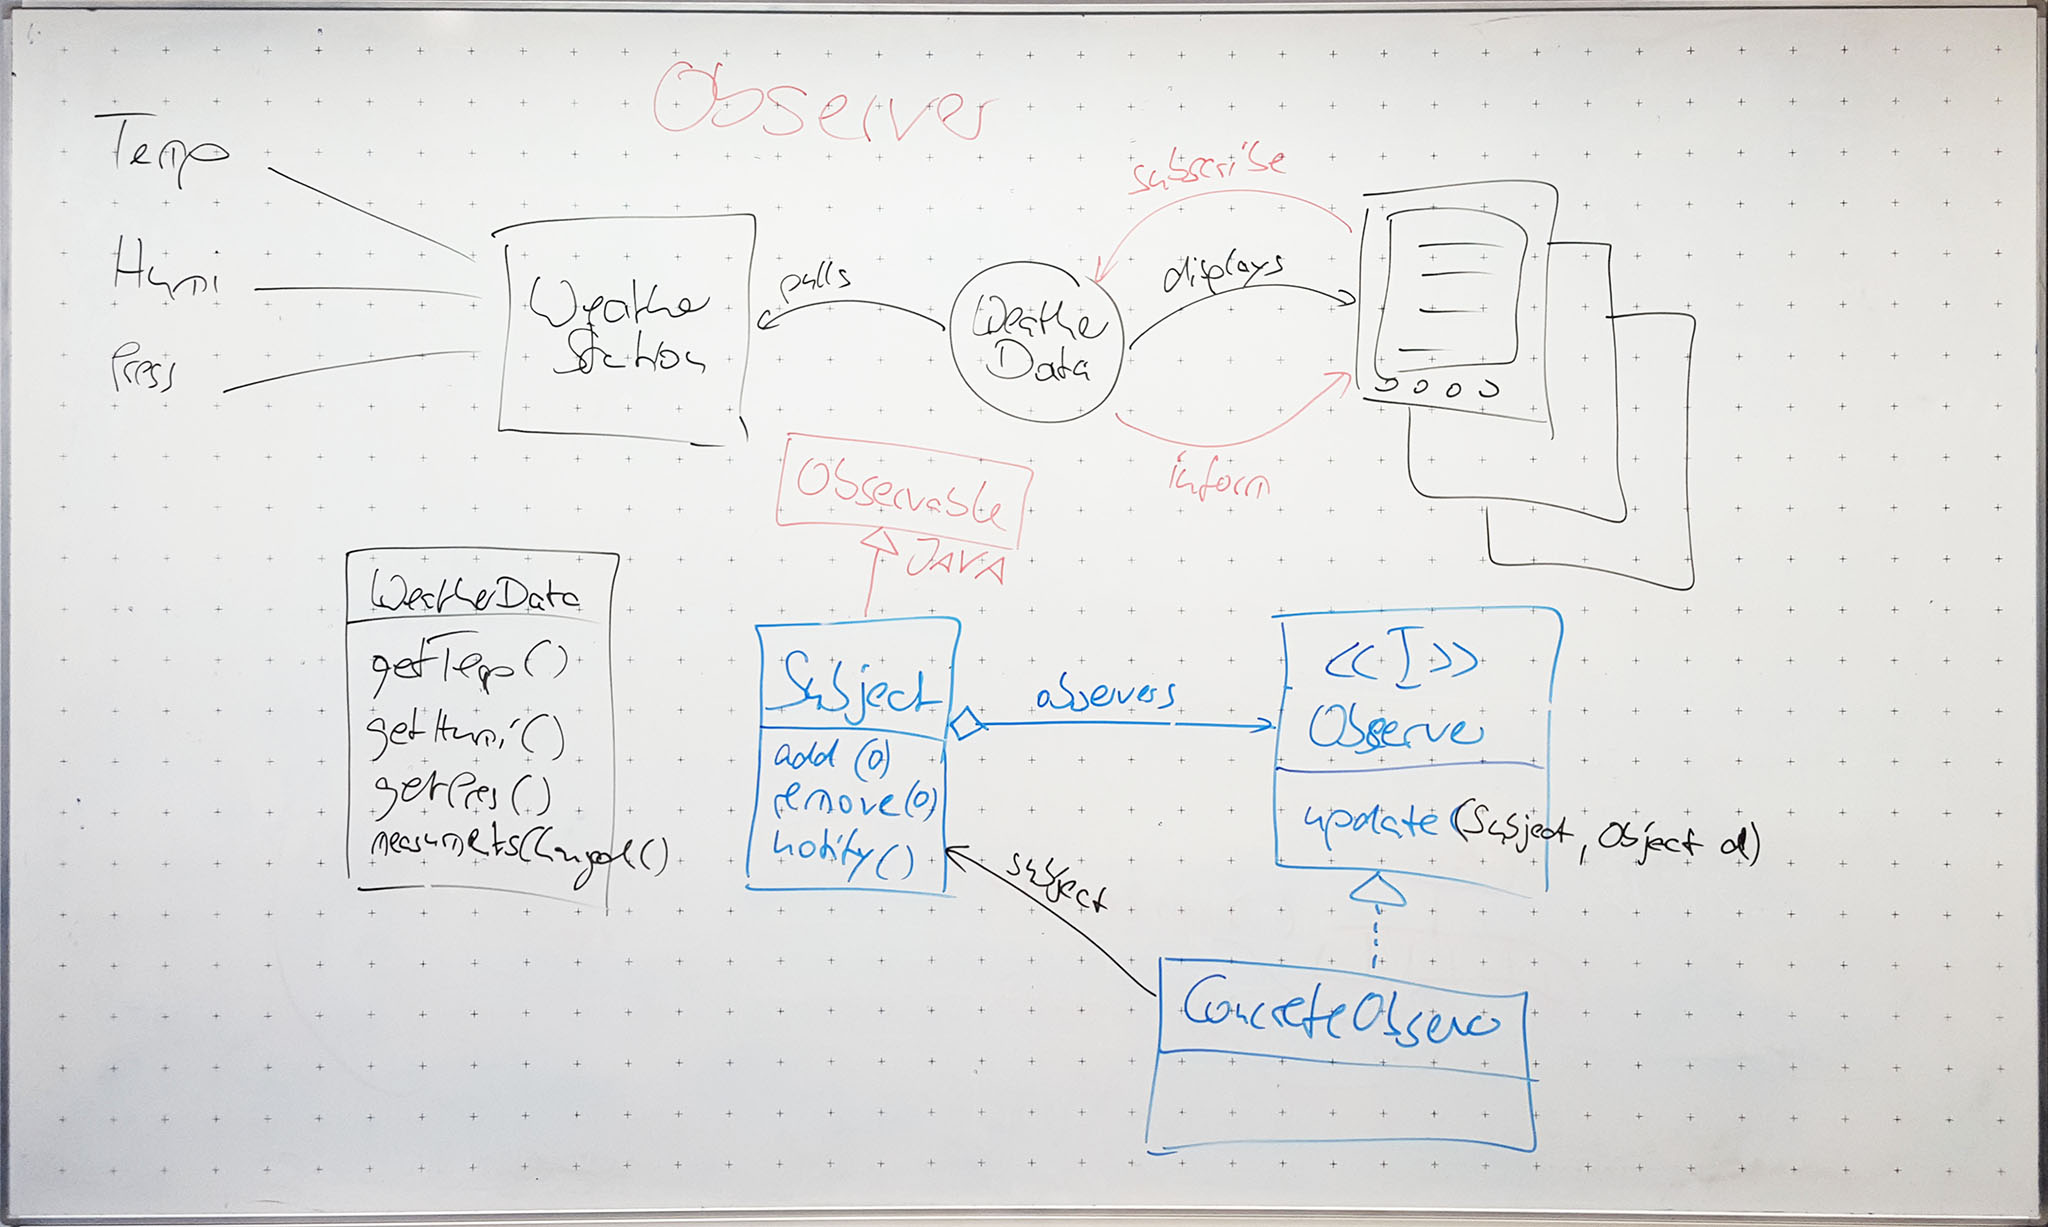 Observer
Temp
Humi
Press
Weather
Station
pulls
Weather
Data
subscribe
displays
inform
Observable
JAVA
WeatherData
getTemp()
getHumi()
getPres()
measurmetsChanged()
Subject
add (o)
remove(o)
notify()
observers
<<I>>
Observer
update (Subject, Object d)
subject
ConcreteObserv